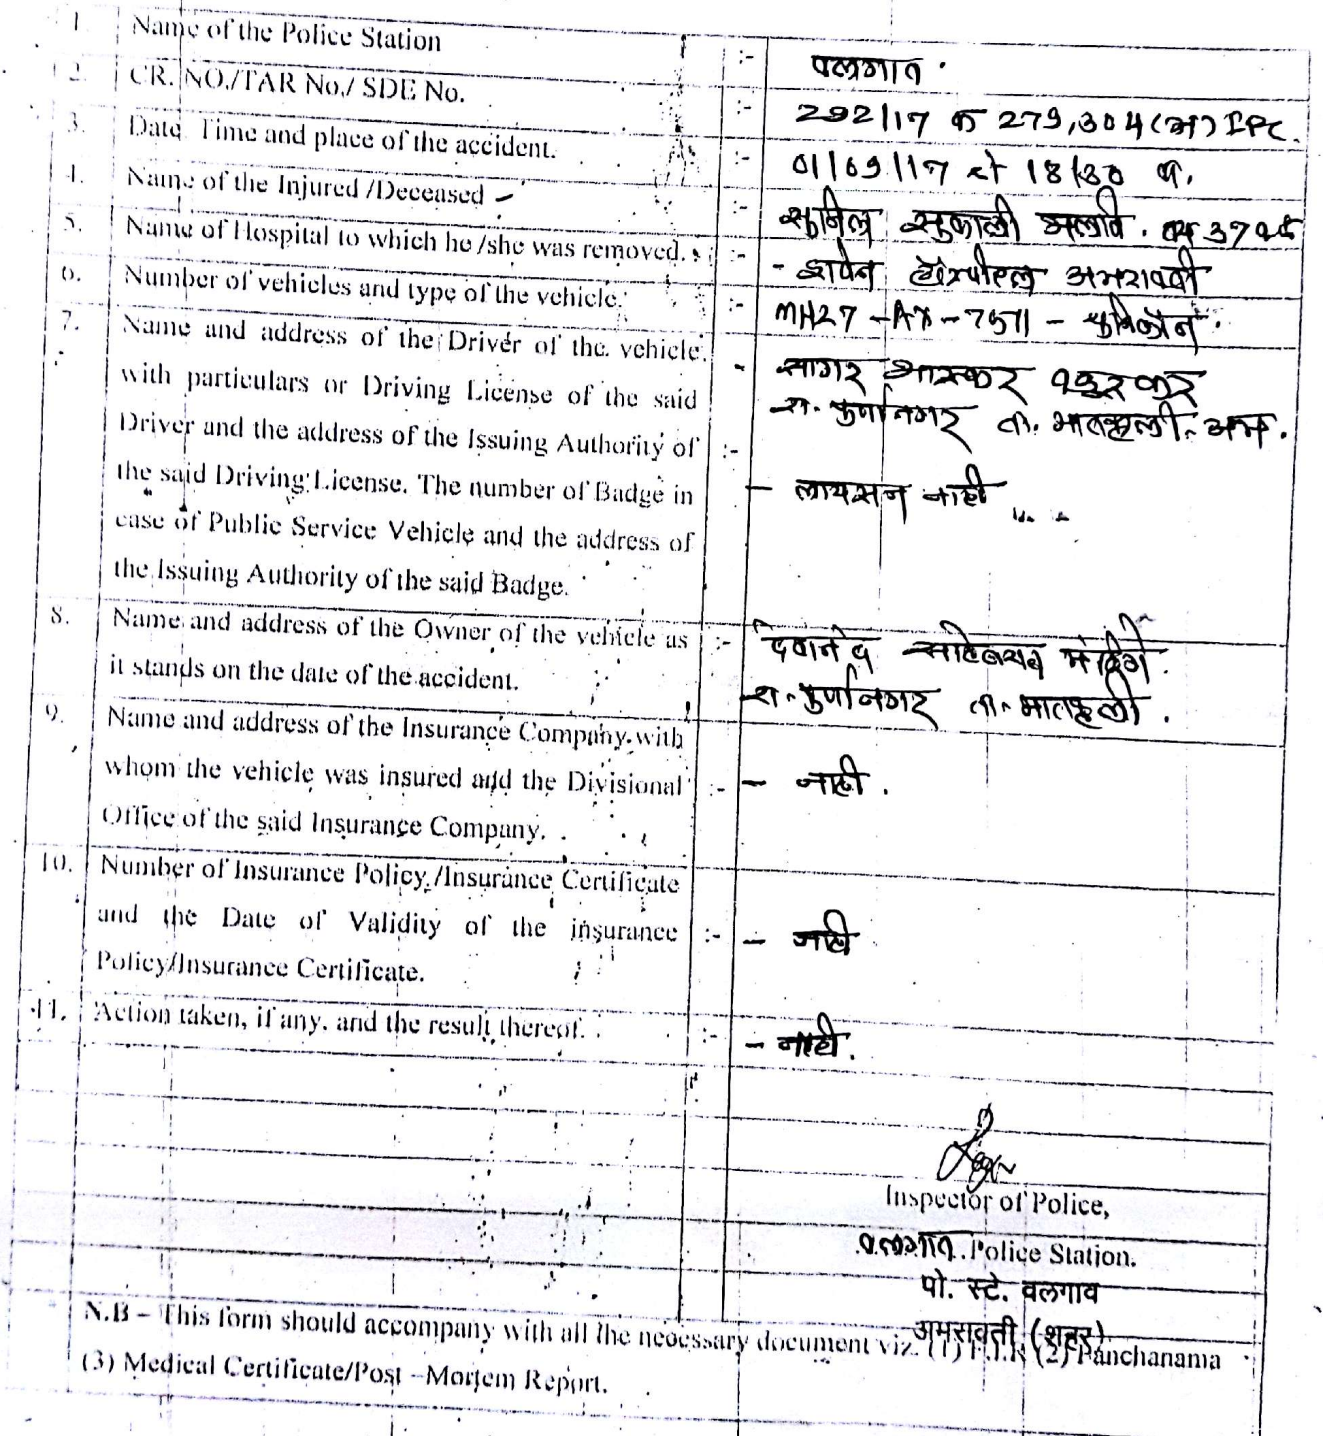 1. Name of the Police Station :- वलगाव .
2. CR. NO./TAR No./ SDE No. :- 292/17 क 279,304(अ) IPC.
3. Date Time and place of the accident. :- 01/09/17 चे 18/30 वा.
4. Name of the Injured /Deceased – :- सुनिल सुकाली मलावे . वय 37 वर्ष
5. Name of Hospital to which he /she was removed. :- - हॉस्पीटल अमरावती
6. Number of vehicles and type of the vehicle. :- MH27 - AX - 7571 - युनिकॉर्न .
7. Name and address of the Driver of the vehicle - सागर भास्कर
with particulars or Driving License of the said रा. पुर्णानगर ता. भातकुली. अम.
Driver and the address of the Issuing Authority of :-
the said Driving License. The number of Badge in - लायसन नाही
case of Public Service Vehicle and the address of
the Issuing Authority of the said Badge.
8. Name and address of the Owner of the vehicle as :- देवानंद साहेबराव
it stands on the date of the accident. रा. पुर्णानगर ता. भातकुली .
9. Name and address of the Insurance Company with
whom the vehicle was insured and the Divisional :- - नाही .
Office of the said Insurance Company.
10. Number of Insurance Policy./Insurance Certificate
and the Date of Validity of the insurance :- - नाही
Policy/Insurance Certificate.
11. Action taken, if any, and the result thereof. :- - नाही .
Inspector of Police,
वलगाव Police Station.
पो. स्टे. वलगाव
अमरावती (शहर)
N.B – This form should accompany with all the necessary document viz. (1) F.I.R (2) Panchanama
(3) Medical Certificate/Post –Mortem Report.